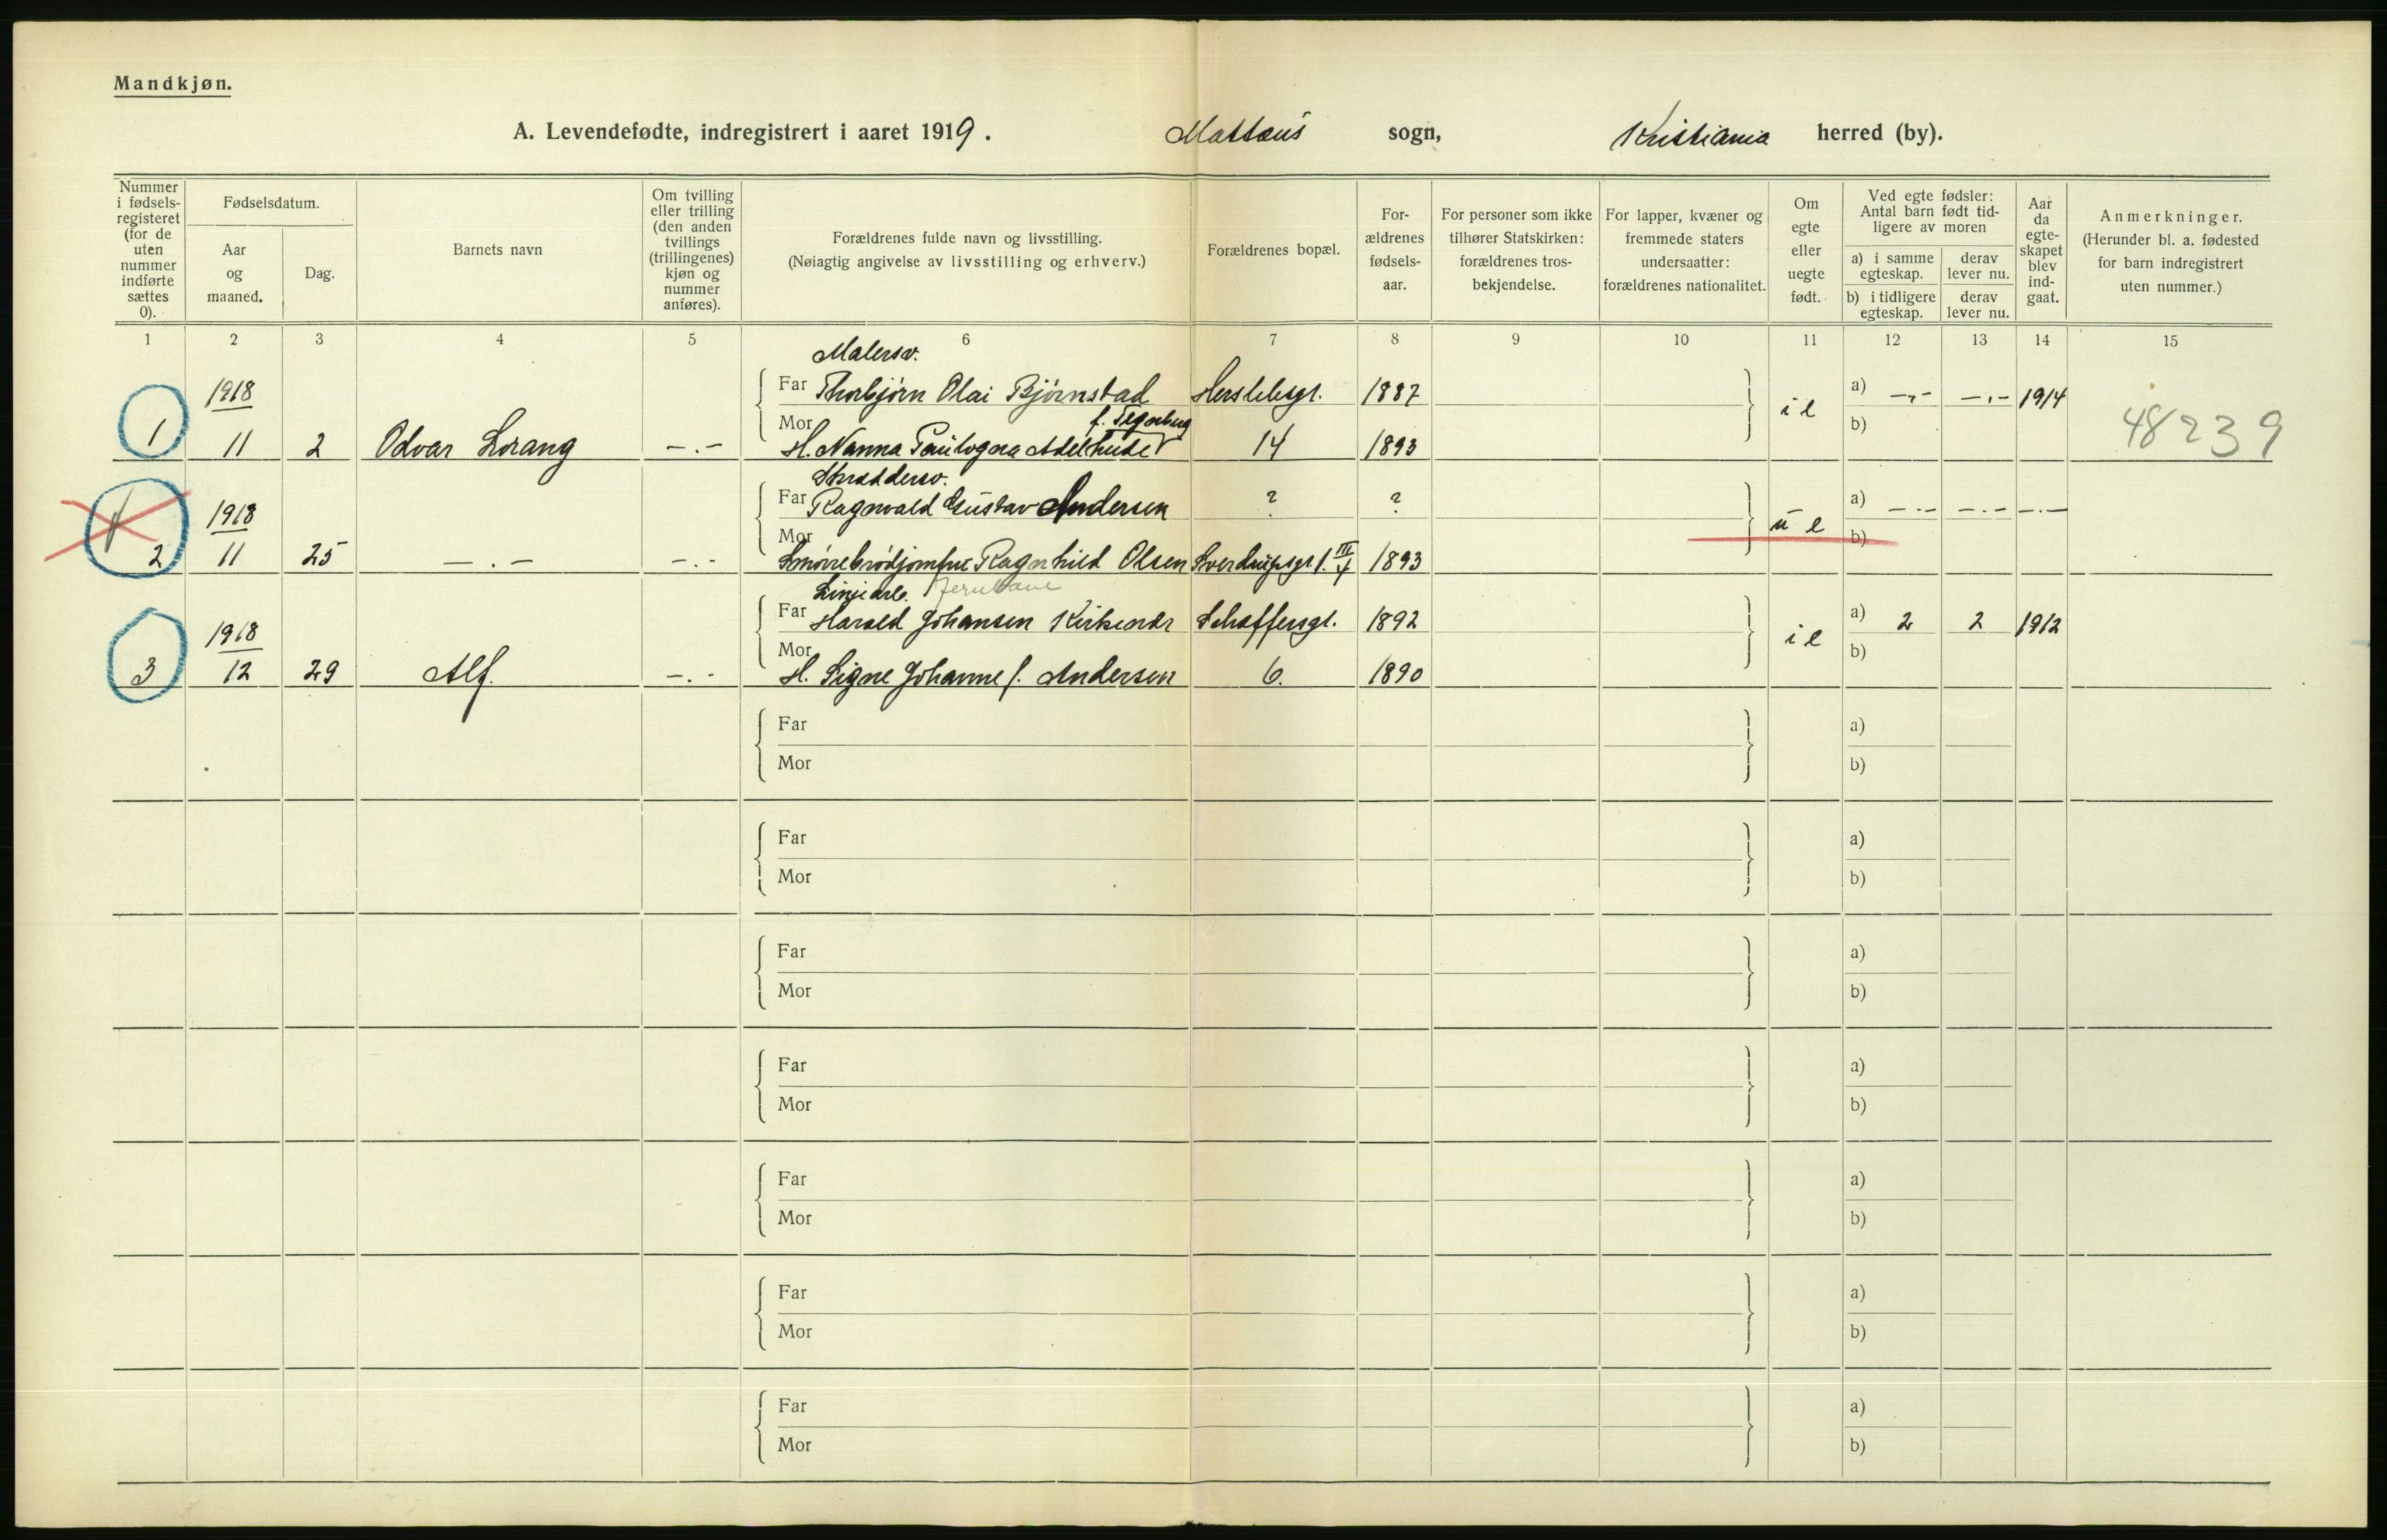 Mandkjøn.
A. Levendefødte, indregistrert i aaret 1919. Mattæus sogn, Kristiania herred (by).
Nummer i fødsels-registeret (for de uten nummer indførte sættes 0).
Fødselsdatum.
Aar og maaned.
Dag.
Barnets navn
Om tvilling eller trilling (den anden tvillings (trillingenes) kjøn og nummer anføres).
Forældrenes fulde navn og livsstilling.
(Nøiagtig angivelse av livsstilling og erhverv.)
Forældrenes bopæl.
For-ældrenes fødsels-aar.
For personer som ikke tilhører Statskirken: forældrenes tros-bekjendelse.
For lapper, kvæner og fremmede staters undersaatter: forældrenes nationalitet.
Om egte eller uegte født.
Ved egte fødsler: Antal barn født tid-ligere av moren
a) i samme egteskap. derav lever nu.
b) i tidligere egteskap. derav lever nu.
Aar da egte-skapet blev ind-gaat.
Anmerkninger.
(Herunder bl. a. fødested for barn indregistrert uten nummer.)
1 2 3 4 5 6 7 8 9 10 11 12 13 14 15
Malersv.
1918 Far Thorbjørn Olai Bjørnstad Herslebsgt. 1887 i e a) -.- -.- 1914
Mor b) 48239
1 11 2 Odvar Lorang -.- H. Nanna 14 1893
Skræddersv.
1918 Far Ragnvald Gustav Andersen ? ? u e a) -.- -.- -.-
Mor b)
2 11 25 -.- -.- Smørrebrødjomfru Ragnhild Olsen Sverdrupsgt 1893
Linjearb. Jernbane
1918 Far Harald Johansen Schøffersgt. 1892 i e a) 2 2 1912
Mor b)
3 12 29 Alf. -.- H. Signe Johanne f. Andersen 6. 1890
Far a)
Mor b)
Far a)
Mor b)
Far a)
Mor b)
Far a)
Mor b)
Far a)
Mor b)
Far a)
Mor b)
Far a)
Mor b)